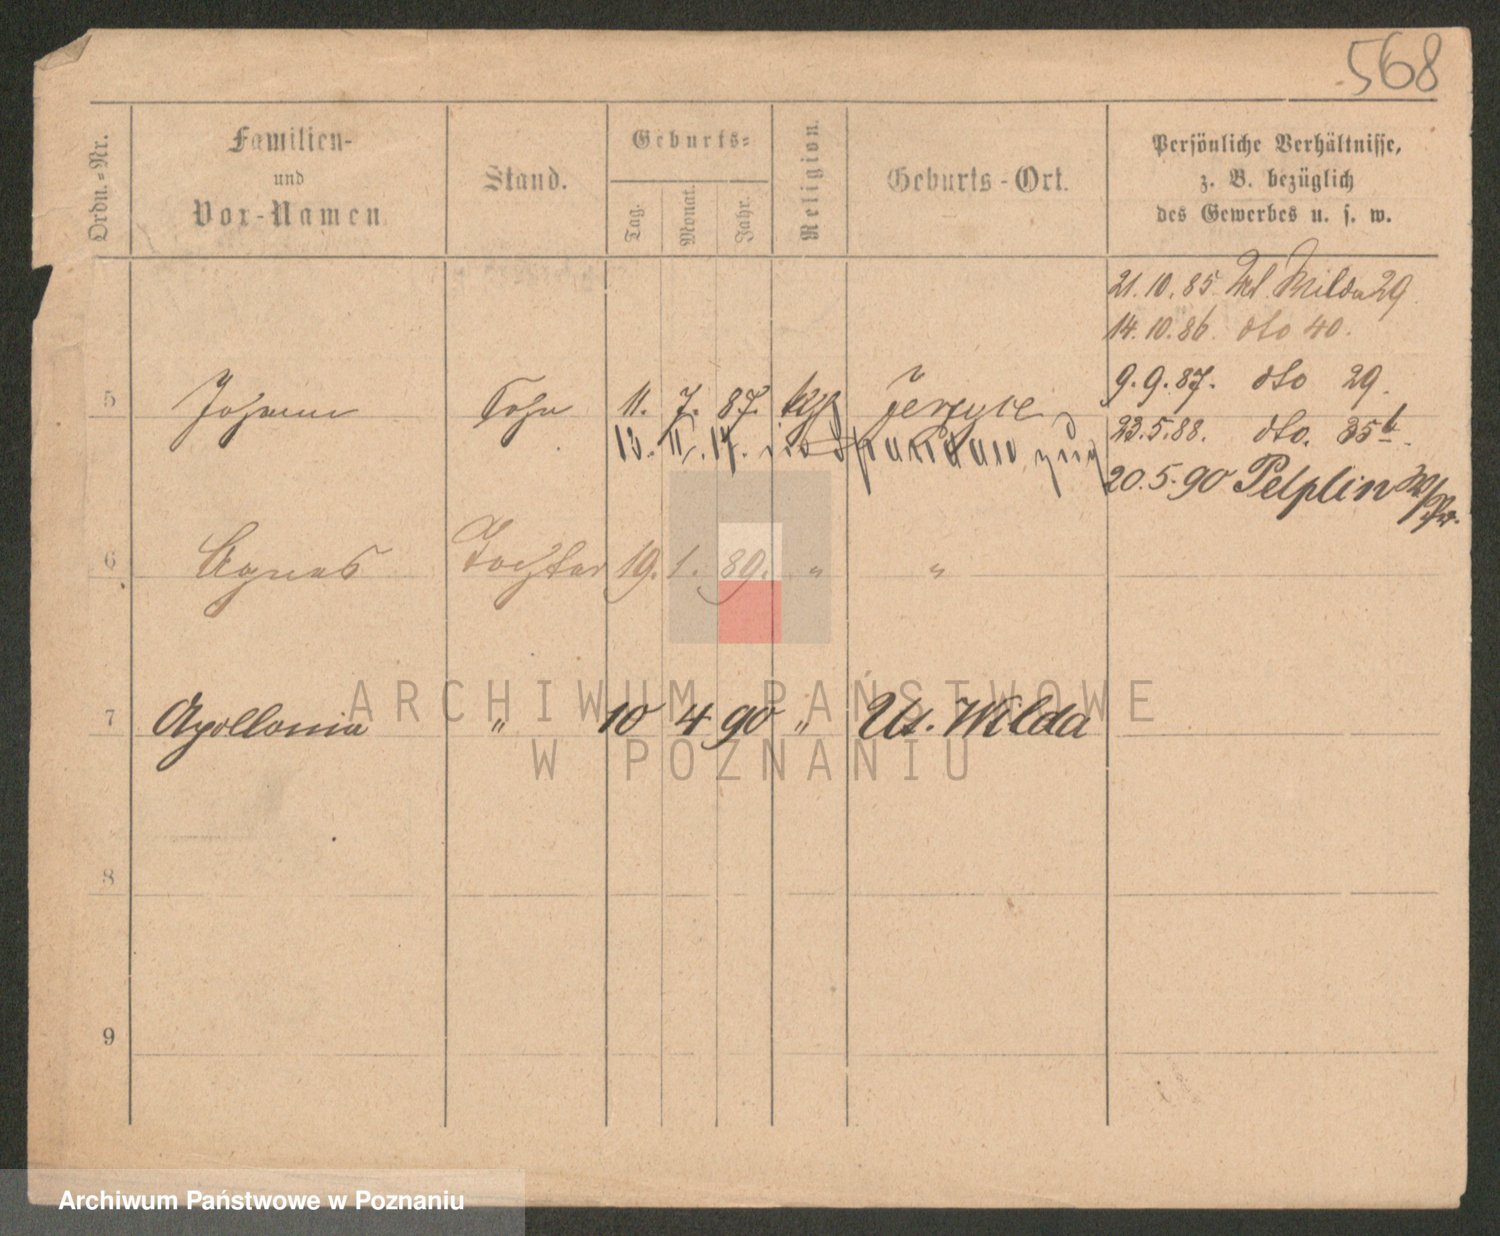 568
Ordn.-Nr.
Familien-
und
Vor-Namen.
Stand.
Geburts-
Tag.
Monat.
Jahr.
Religion.
Geburts-Ort.
Persönliche Verhältnisse,
z. B. bezüglich
des Gewerbes u. s. w.
21. 10. 85. Wilda 29.
14. 10. 86. dto 40.
9. 9. 87. dto 29.
5 Johann Sohn 11. 7. 87. kth Jerzyce
23. 5. 88. dto. 35b.
13. II. 17.
20. 5. 90 Pelplin W/Pr.
6 Agnes Tochter 19. 1. 89. " "
7 Apollonia " 10 4 90 " Ut. Wilda
8
9
ARCHIWUM PAŃSTWOWE
W POZNANIU
Archiwum Państwowe w Poznaniu